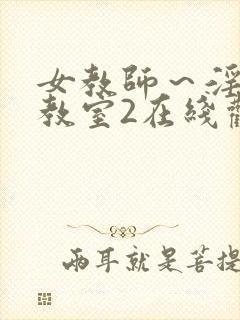 女教師～淫
教室2在綫觀
兩耳就是菩提